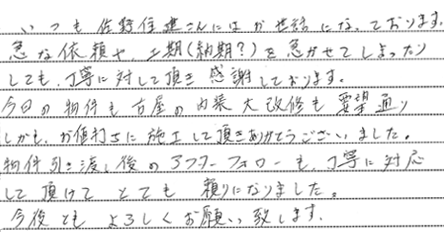 いつも佐野住建さんにはお世話になっております。
急な依頼や、工期(納期?)を急がせてしまったり
しても、丁寧に対して頂き感謝しております。
今回の物件も古屋の内装大改修も要望通り
しかも、お値打ちに施工して頂きありがとうございました。
物件引き渡し後のアフターフォローも、丁寧に対応
して頂けてとても頼りになりました。
今後ともよろしくお願い致します。